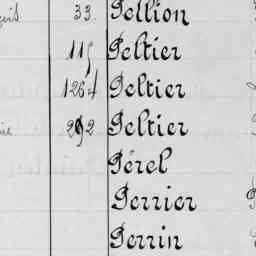 33. Pellion
115 Peltier
1264 Peltier
292 Peltier
Pérel
Perrier
Perrin